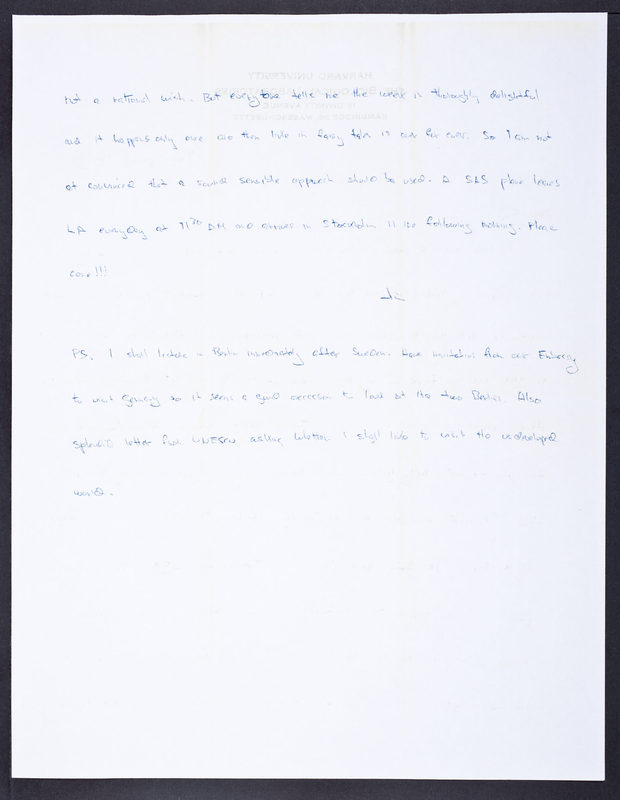 not a rational wish. But everyone tells me the week is thoroughly delightful
and it happens only once and then life in fairy tales is over for ever. So I am not
at convinced that a sound sensible approach should be used. A SAS plane leaves
LA everyday at 11 30 AM and arrives in Stockholm 11 the following morning. Please
come!!!
Jim
PS. I shall lecture in Berlin immediately after Sweden. Have invitation from our Embassy
to visit Germany so it seems a good occasion to look at the two Berlins. Also
splendid letter from UNESCO asking whether I shall like to visit the undeveloped
world.
HARVARD UNIVERSITY
16 DIVINITY AVENUE
CAMBRIDGE 38, MASSACHUSETTS